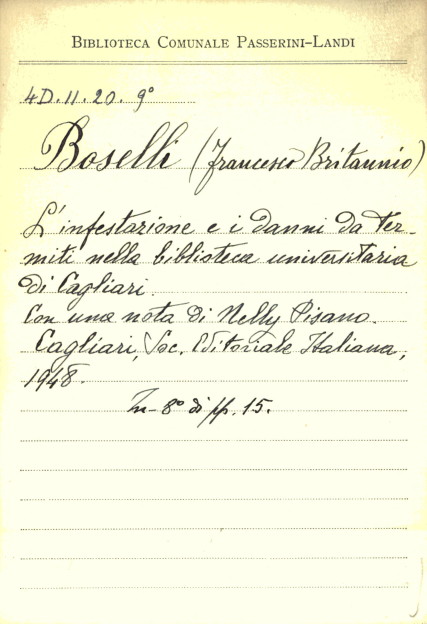 BIBLIOTECA COMUNALE PASSERINI-LANDI
4D.11.20.9°
Boselli (Francesco Britannio)
L'infestazione e i danni da ter-
miti nella biblioteca universitaria
di Cagliari.
Con una nota di Nelly Pisano.
Cagliari, Soc. Editoriale Italiana,
1948.
In-8° di pp. 15.